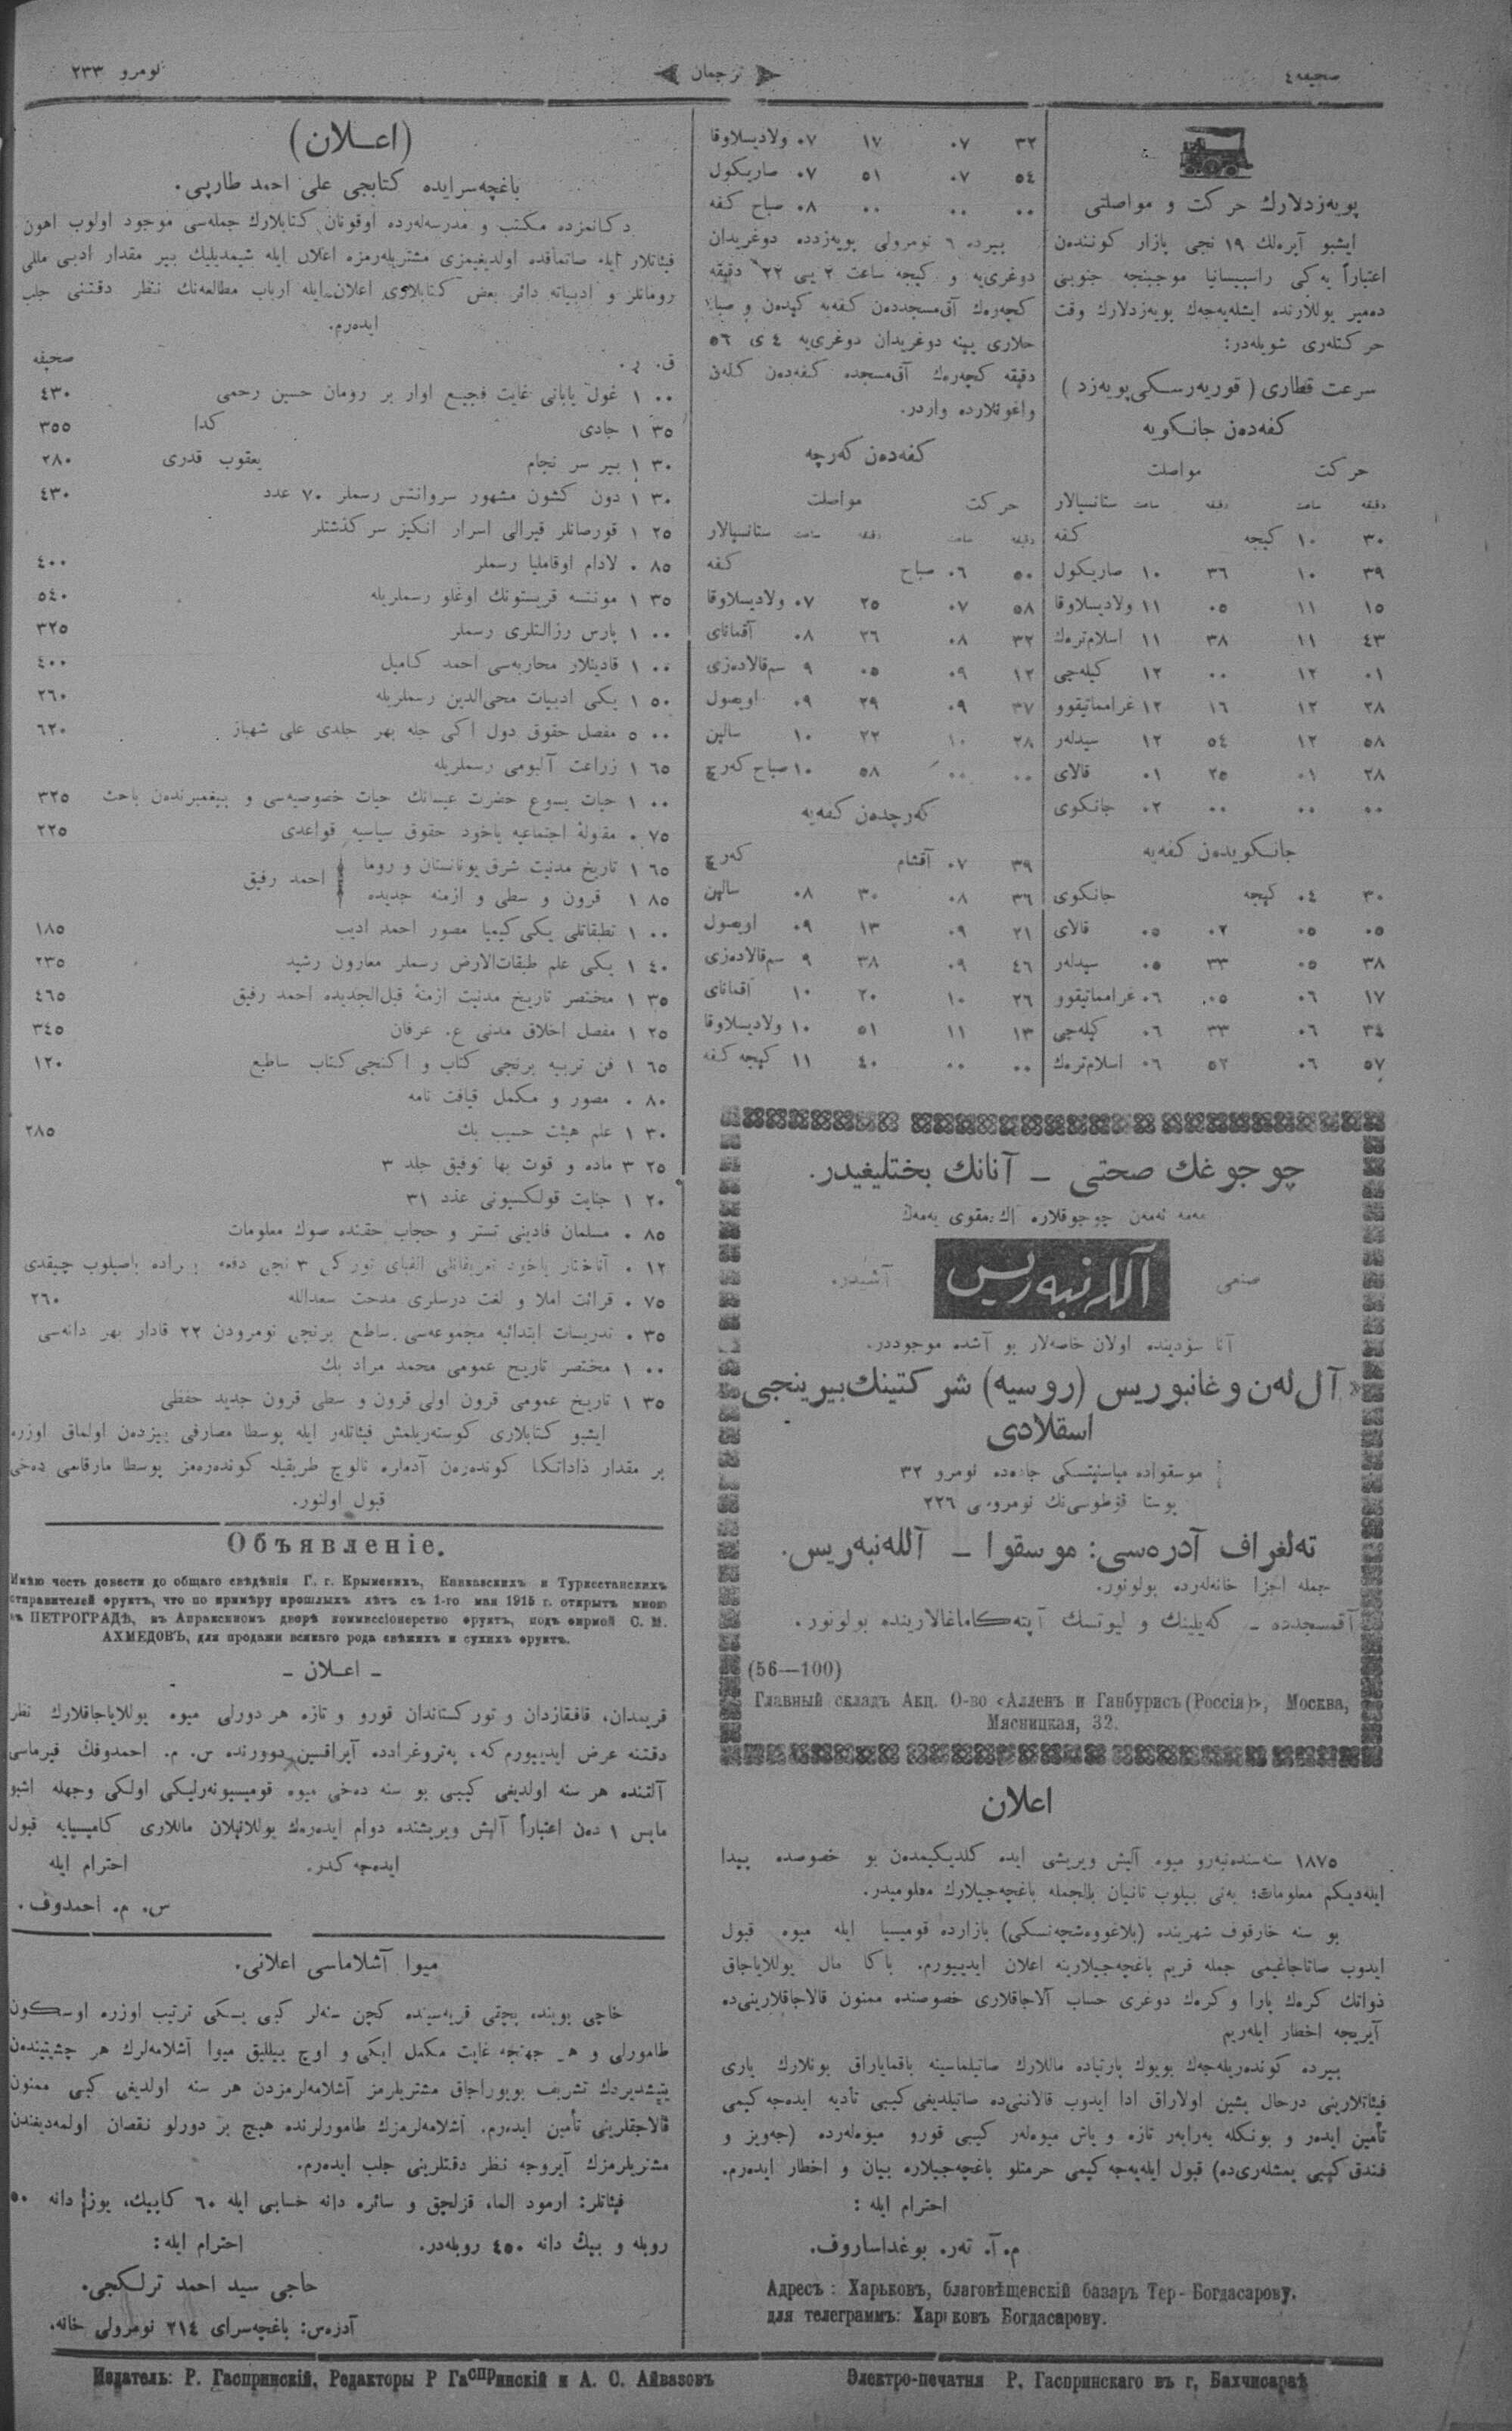 صحيفه ٤
ترجمان
نومرو ٢٣٣
پویەزدلارك حركت و مواصلتی
ایشبو آیرەلك ١٩ نجی بازار كوننده‌ن
اعتباراً یەكی راسپیسانیا موجبنجه جنوبی
دەمیر یوللارنده ایشلەیەجەك پویەزدلارك وقت
حركتلەری شویلەدر:
سرعت قطاری (قوریەرسكی پویەزد)
كفەدەن جانكویه
حركت مواصلت
دقیقه ساعت دقیقه ساعت ستانسیالار
٣٠ ١٠ كیجه كفه
٣٩ ١٠ ٣٦ ١٠ صاریكول
١٥ ١١ ٠٥ ١١ ولادیسلاوقا
٤٣ ١١ ٣٨ ١١ اسلام‌تره‌ك
٠١ ١٢ ٠٠ ١٢ كیلەچی
٢٨ ١٢ ١٦ ١٢ غرامماتیقوو
٥٨ ١٢ ٥٤ ١٢ سیدلەر
٢٨ ٠١ ٢٥ ٠١ قالای
٠٠ ٠٠ ٠٠ ٠٢ جانكوی
جانكویدەن كفەیه
٣٠ ٠٤ كیجه جانكوی
٠٥ ٠٥ ٠٢ ٠٥ قالای
٣٨ ٠٥ ٣٣ ٠٥ سیدلەر
١٧ ٠٦ ٠٥ ٠٦ غرامماتیقوو
٣٤ ٠٦ ٣٣ ٠٦ كیلەچی
٥٧ ٠٦ ٥٢ ٠٦ اسلام‌تره‌ك
٣٢ ٠٧ ١٧ ٠٧ ولادیسلاوقا
٥٤ ٠٧ ٥١ ٠٧ صاریكول
٠٠ ٠٠ ٠٠ ٠٨ صباح كفه
بیرده ٦ نومرولی پویەزدده دوغریدان
دوغری‌یه و كیجه ساعت ٢ یی ٢٢ دقیقه
كچەرەك آق‌مسجددەن كفەیه كیدەن و صبا
حلاری یینه دوغریدان دوغری‌یه ٤ ی ٥٦
دقیقه كچەرەك آق‌مسجده كفەدەن كلەن
واغونلارده واردر.
كفەدەن كەرچه
حركت مواصلت
دقیقه ساعت دقیقه ساعت ستانسیالار
٥٠ ٠٦ صباح كفه
٥٨ ٠٧ ٢٥ ٠٧ ولادیسلاوقا
٣٢ ٠٨ ٢٦ ٠٨ آقمانای
١٢ ٠٩ ٠٥ ٩ سم‌قالادەزی
٣٧ ٠٩ ٢٩ ٠٩ اویصول
٢٨ ١٠ ٢٢ ١٠ سالین
٠٠ ٠٠ ٥٨ ١٠ صباح كەرچ
كەرچدەن كفەیه
٣٩ ٠٧ آقشام كەرچ
٣٦ ٠٨ ٣٠ ٠٨ سالین
٢١ ٠٩ ١٣ ٠٩ اویصول
٤٦ ٠٩ ٣٨ ٩ سم‌قالادەزی
٢٦ ١٠ ٢٠ ١٠ آقمانای
١٣ ١١ ٥١ ١٠ ولادیسلاوقا
٠٠ ٠٠ ٤٠ ١١ كیجه كفه
چوجوغك صحتی – آنانك بختلیغیدر.
مەمه ئەمەن چوجوقلاره اك مقوی یەمەك
صنعی آللەنبەریس آشیدر.
آنا سؤدینده اولان خاصەلار بو آشده موجوددر.
«آل‌لەن و غانبوریس (روسیه) شركتینك بیرینجی
اسقلادی
موسقواده میاسنیتسكی جاده‌ده نومرو ٣٢
پوستا قوطوسی‌نك نومروسی ٢٢٦
تەلغراف آدرەسی: موسقوا – آللەنبەریس.
جمله اجزا خانەلەرده بولونور.
آقمسجدده – كەیلینك و لیوتسك آپتەكاماغالارینده بولونور.
(56—100)
Главный складъ Акц. О-во «Алленъ и Ганбурисъ (Россія)», Москва,
Мясницкая, 32.
اعلان
١٨٧٥ سنه‌سنده‌نبەرو میوه آلیش ویریشی ایده كلدیكیمدەن بو خصوصده پیدا
ایلەدیكم معلومات؛ یەنی بیلوب تانیان بالجمله باغچەجیلارك معلومیدر.
بو سنه خارقوف شهرینده (بلاغووەشچەنسكی) بازارده قومیسیا ایله میوه قبول
ایدوب صاتاجاغیمی جمله قریم باغچەجیلارینه اعلان ایدییورم. باكا مال یوللایاجاق
ذواتك كرەك پارا و كرەك دوغری حساب آلاجاقلاری خصوصنده ممنون قالاجاقلارینی‌ده
آیریجه اخطار ایلەریم
بیرده كوندەریلەجەك بویوك پارتیاده ماللارك صاتیلماسینه باقمایاراق بونلارك یاری
فیئاتلارینی درحال پشین اولاراق ادا ایدوب قالاننی‌ده صاتیلدیغی كیبی تأدیه ایدەجەكیمی
تأمین ایدەر و بونكله بەرابەر تازه و یاش میوەلەر كیبی قورو میوەلەرده (جەویز و
فندق كیبی یمشلەری‌ده) قبول ایلەیەجەكیمی حرمتلو باغچەجیلاره بیان و اخطار ایدەرم.
احترام ایله :
م. آ. تەر. بوغداساروف.
Адресъ: Харьковъ, благовѣщенскій базаръ Тер-Богдасарову.
для телеграммъ: Харьковъ Богдасарову.
(اعلان)
باغچەسرایده كتابجی علی احمد طارپی.
دكانمزده مكتب و مدرسەلەرده اوقونان كتابلارك جمله‌سی موجود اولوب اهون
فیئاتلار ایله صاتماقده اولدیغیمزی مشتریلەرمزه اعلان ایله شیمدیلیك بیر مقدار ادبی مللی
رومانلر و ادبیاته دائر بعض كتابلاری اعلان ایله ارباب مطالعه‌نك نظر دقتنی جلب
ایدەرم.
ق. ر. صحیفه
٠٠ ١ غول یابانی غایت فجیع اوار بر رومان حسین رحمی ٤٣٠
٣٥ ١ جادی كذا ٣٥٥
٣٠ ١ بیر سر نجام یعقوب قدری ٢٨٠
٣٠ ١ دون كشون مشهور سروانتس رسملر ٧٠ عدد ٤٣٠
٢٥ ١ قورصانلر قیرالی اسرار انكیز سركذشتلر
٨٥ ٠ لادام اوقاملیا رسملر ٤٠٠
٣٥ ١ مونتسه قریستونك اوغلو رسملریله ٥٤٠
٠٠ ١ پارس رزالتلری رسملر ٣٢٥
٠٠ ١ قادینلار محاربه‌سی احمد كامیل ٤٠٠
٥٠ ١ یكی ادبیات محی‌الدین رسملریله ٢٦٠
٠٠ ٥ مفصل حقوق دول اكی جله بهر جلدی علی شهباز ٦٢٠
٦٥ ١ زراعت آلبومی رسملریله
٠٠ ١ حیات یسوع حضرت عیسانك حیات خصوصیه‌سی و پیغمبرندەن باحث ٣٢٥
٧٥ ٠ مقولهٔ اجتماعیه یاخود حقوق سیاسیه قواعدی ٢٢٥
٦٥ ١ تاریخ مدنیت شرق یونانستان و روما
٨٥ ١ قرون و سطی و ازمنه جدیده احمد رفیق
٠٠ ١ تطبقاتلی یكی كیمیا مصور احمد ادیب ١٨٥
٤٠ ١ یكی علم طبقات‌الارض رسملر معارون رشید ٢٣٥
٣٥ ١ مختصر تاریخ مدنیت ازمنهٔ قبل‌الجدیده احمد رفیق ٤٦٥
٢٥ ١ مفصل اخلاق مدنی ع. عرفان ٣٤٥
٦٥ ١ فن تربیه برنجی كتاب و اكنجی كتاب ساطع ١٢٠
٨٠ ٠ مصور و مكمل قیافت نامه
٣٠ ١ علم هیئت حسیب بك ٢٨٥
٢٥ ٣ ماده و قوت بها توفیق جلد ٣
٢٠ ١ جنایت قولكسیونی عدد ٣١
٨٥ ٠ مسلمان قادینی تستر و حجاب حقنده صوك معلومات
١٢ ٠ آناختار یاخود تعریفاتلی الفبای توركی ٣ نجی دفعه باصیلوب چیقدی
٧٥ ٠ قرائت املا و لغت درسلری مدحت سعدالله ٢٦٠
٣٥ ٠ تدریسات ابتدائیه مجموعه‌سی ساطع برنجی نومرودن ٢٢ قادار بهر دانه‌سی
٠٠ ١ مختصر تاریخ عمومی محمد مراد بك
٣٥ ١ تاریخ عمومی قرون اولی قرون و سطی قرون جدید حفظی
ایشبو كتابلاری كوستەریلمش فیئاتلەر ایله پوسطا مصارفی بیزدەن اولماق اوزره
بر مقدار ذاداتكا كوندەرەن آدملره نالوج طریقیله كوندەرەمز پوسطا مارقاسی دەخی
قبول اولنور.
Объявленіе.
Имѣю честь довести до общаго свѣдѣнія Г. г. Крымскихъ, Кавказскихъ и Туркестанскихъ
отправителей фруктъ, что по примѣру прошлыхъ лѣтъ съ 1-го мая 1915 г. открытъ мною
въ ПЕТРОГРАДѢ, въ Апраксиномъ дворѣ коммиссіонерство фруктъ, подъ фирмой С. М.
АХМЕДОВЪ, для продажи всякаго рода свѣжихъ и сухихъ фруктъ.
– اعلان –
قریمدان، قافقازدان و توركستاندان قورو و تازه هر دورلی میوه یوللایاجاقلارك نظر
دقتنه عرض ایدییورم كه، پەتروغرادده آپراقسین دوورنده س. م. احمدوفك فیرماسی
آلتنده هر سنه اولدیغی كیبی بو سنه دەخی میوه قومیسیونەرلیكی اولكی وجهله اشبو
مایس ١ دەن اعتباراً آلیش ویریشنده دوام ایدەرەك یوللانیلان ماللاری كامیسیایه قبول
ایدەجەكدر. احترام ایله
س. م. احمدوف.
میوا آشلاماسی اعلانی.
خاچی بوینده بچقی قریه‌سینده كچن سنەلر كبی یسكی ترتیب اوزره اوسكون
طامورلی و هر جهتجه غایت مكمل ایكی و اوچ ییللیق میوا آشلامەلرك هر چشیتیندەن
یتیشدیردك تشریف بویوراجاق مشتریلرمز آشلامەلرمزدن هر سنه اولدیغی كیبی ممنون
قالاجقلرینی تأمین ایدەرم. آشلامەلرمزك طامورلرنده هیچ بر دورلو نقصان اولمەدیغندن
مشتریلرمزك آیروجه نظر دقتلرینی جلب ایدەرم.
فیئاتلر: ارمود الما، قزلجق و سائره دانه حسابی ایله ٦٠ كاپیك، یوز دانه ٥٠
روبله و بیك دانه ٤٥٠ روبلەدر. احترام ایله:
حاجی سید احمد ترلكچی.
آدرەس: باغچەسرای ٢١٤ نومرولی خانه.
Издатель: Р. Гаспринскій, Редакторы Р Гаспринскій и А. С. Айвазовъ
Электро-печатня Р. Гаспринскаго въ г. Бахчисараѣ